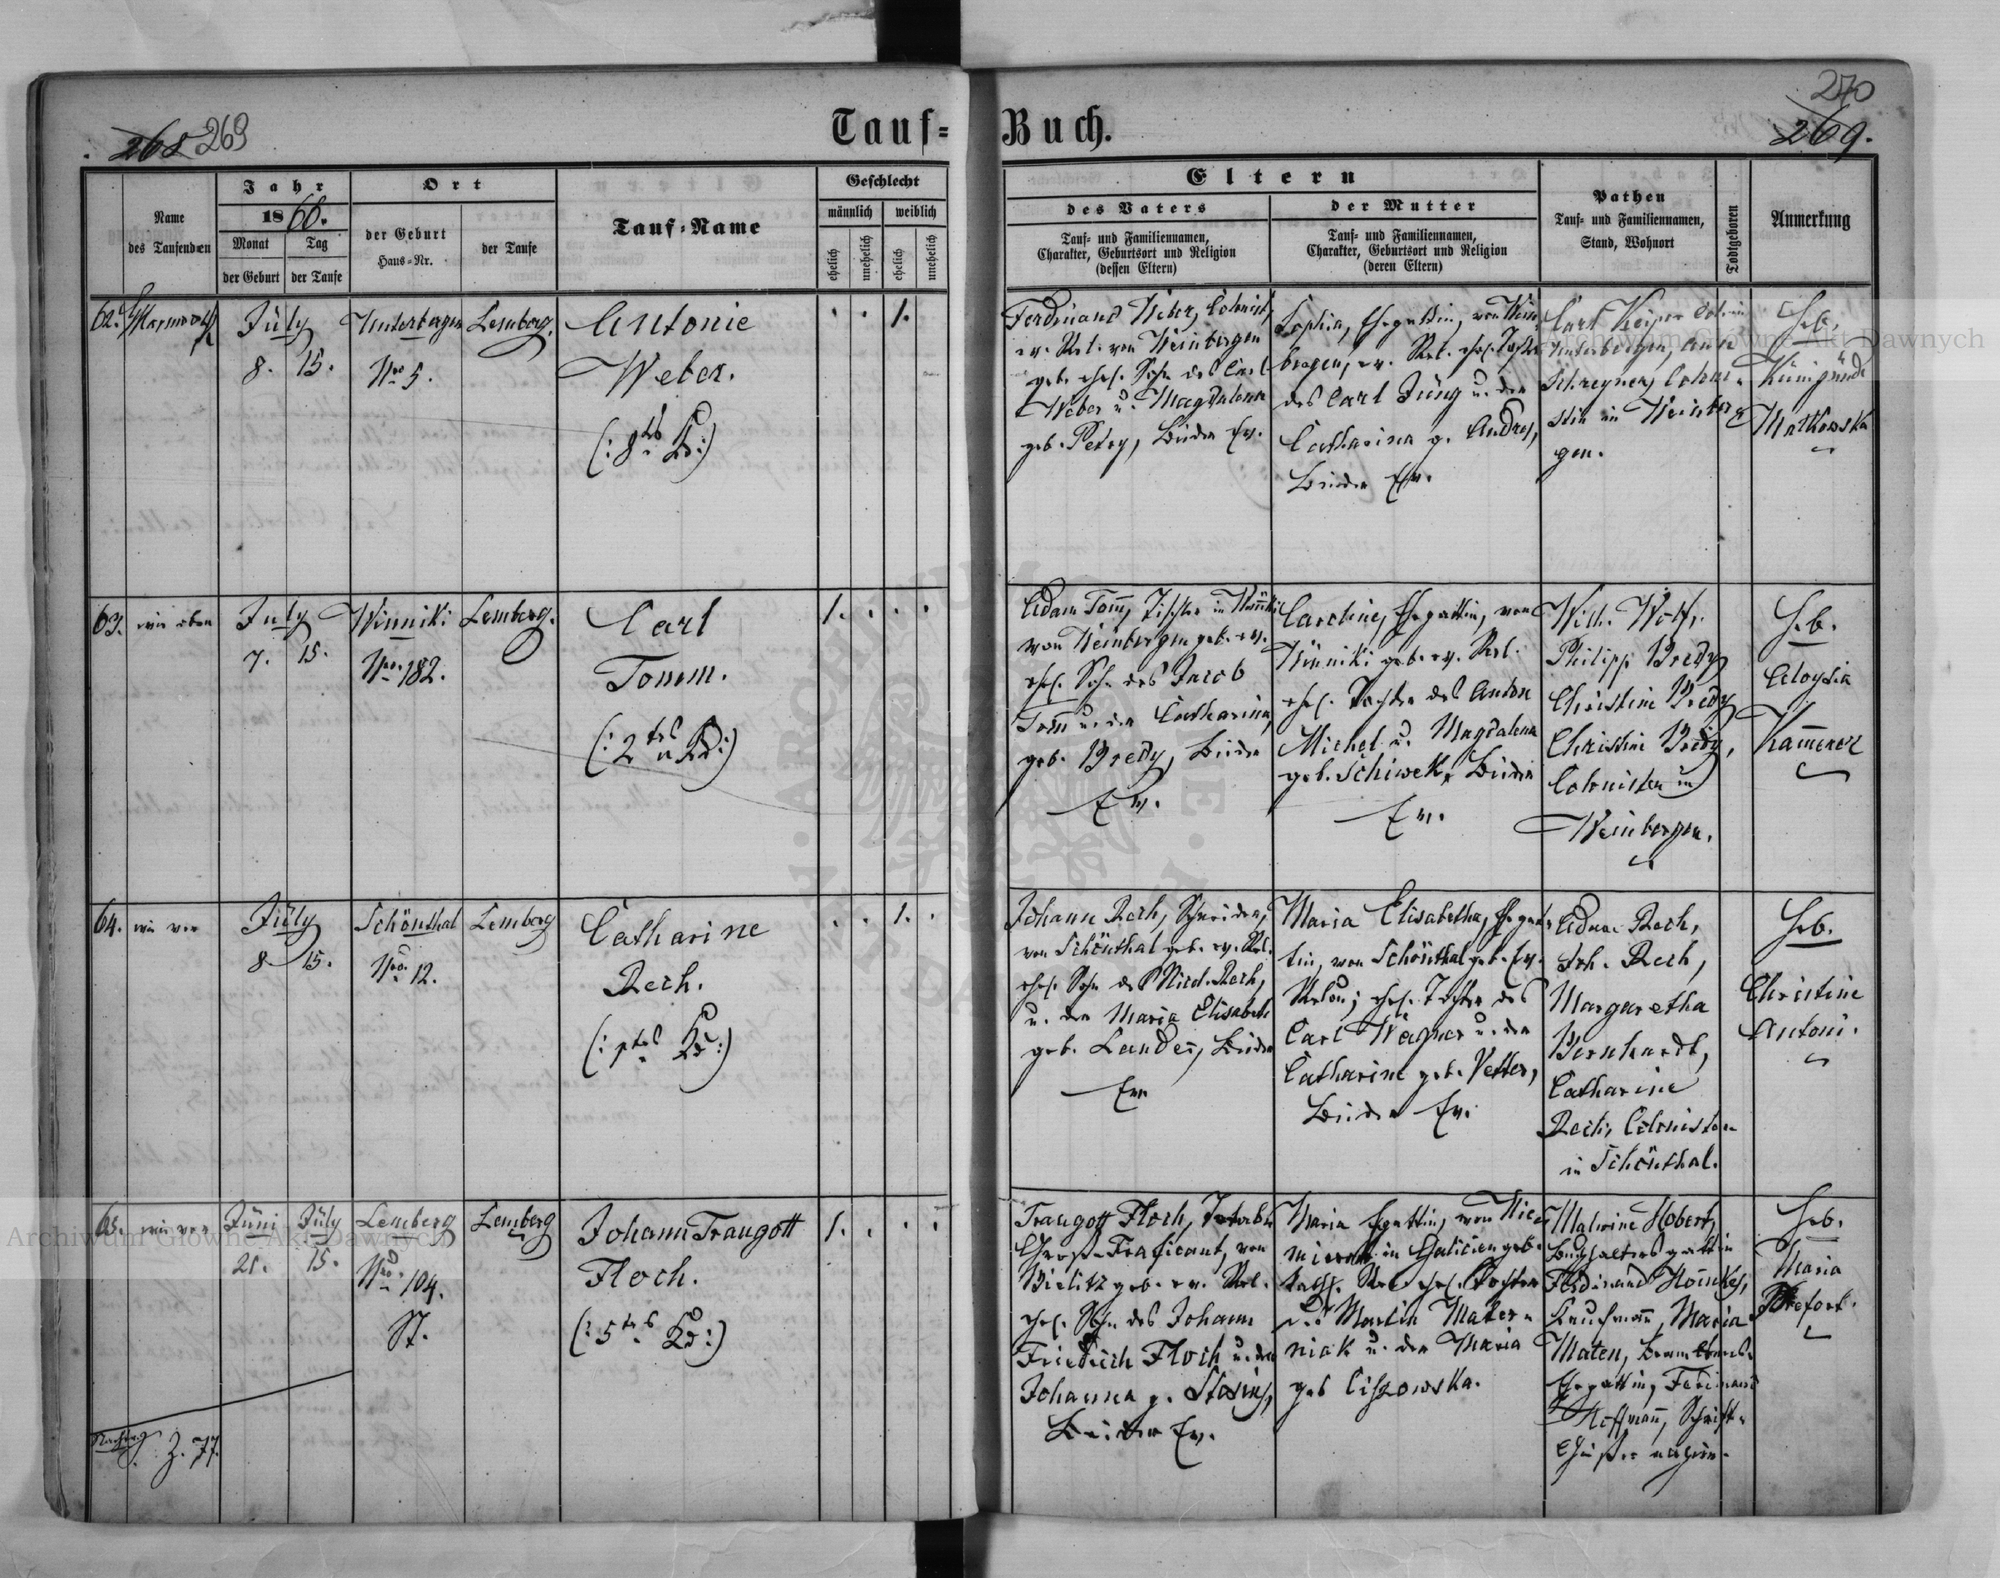 268 269
Tauf=
Buch.
270
269.
Name
des Taufenden
Jahr
1868.
Monat
Tag
der Geburt
der Taufe
Ort
der Geburt
Haus=Nr.
der Taufe
Tauf=Name
Geschlecht
männlich
weiblich
ehelich
unehelich
ehelich
unehelich
Eltern
des Vaters
Tauf= und Familiennamen,
Charakter, Geburtsort und Religion
(dessen Eltern)
der Mutter
Tauf= und Familiennamen,
Charakter, Geburtsort und Religion
(deren Eltern)
Pathen
Tauf= und Familiennamen,
Stand, Wohnort
Todtgeboren
Anmerkung
62.
July
8. 15.
Unterbergen
Nro 5.
Lemberg.
Antonie
Weber.
(: 8tes Kd :)
1.
Ferdinand Weber, Colonist,
ev. Rel. von Weinbergen
geb. ehel. Sohn des Carl
Weber u. Magdalena
geb. Petry, Beide Ev.
Sophia, Ehegattin, von Wein-
bergen, ev. Rel. ehel. Tochter
des Carl Jüng u. der
Catharina g. Andres,
Beide Ev.
Carl Keiper
Unterbergen,
Schreyner, Coloni-
stin in Weinber-
gen.
Heb.
Künigünde
Matkowska
63. wie oben
July
7. 15.
Winniki
Nro. 182.
Lemberg.
Carl
Tomm.
(: 2tes Kd :)
1.
Adam Tomm, Tischler in Winniki
von Weinbergen geb. ev.
ehel. Sohn des Jacob
Tom u. der Catharina,
geb. Bredy, Beide
Ev.
Caroline, Ehegattin, von
Winniki geb. ev. Rel.
ehel. Tochter des Anton
Michel u. Magdalena
geb. Schiwek, Beide
Ev.
Wilh. Wolf,
Philipp Bredy
Christine Bredy
Christine Bredy,
Colonisten in
Weinbergen.
Heb.
Aloysia
Kam̄erer
64. wie vor
July
8. 15.
Schönthal
Nro. 12.
Lemberg
Catharine
Rech.
(: 1tes Kd :)
1.
Johann Rech, Schneider,
von Schönthal geb. ev. Rel.
ehel. Sohn des Nicol. Rech,
u. der Maria Elisabeth
geb. Landes, Beide
Ev.
Maria Elisabetha, Ehegat-
tin, von Schönthal geb. Ev.
Relion; ehel. Tochter des
Carl Wagner u. der
Catharine geb. Vetter,
Beide Ev.
Adam Rech,
Joh. Rech,
Margaretha
Bernhardt,
Catharine
Rech, Colonisten
in Schönthal.
Heb.
Christine
Antoni.
65. wie vor
Juni
21.
July
15.
Lemberg
Nro. 104.
St.
Lemberg
Johann Traugott
Floch.
(: 5tes Kd :)
1.
Traugott Floch, Tabak
Groß-Traficant, von
Bielitz geb. ev. Rel.
ehel. Sohn des Johann
Friedrich Floch u. der
Johanna g.
Beide Ev.
Maria Egattin, von
in Galicien geb.
kath. Rel. ehel. Tochter
des Martin Mater-
niak u. der Maria
geb Ciszowska.
Malwine Hobert,
Buchhaltersgattin
Ferdinand
Kaufman̄, Maria
Maten, Beamtens-
Ehegattin, Ferdinand
Hoffman̄, Schrift-
Heb.
Maria
Z. 77.
Archiwum Główne Akt Dawnych
Archiwum Główne Akt Dawnych